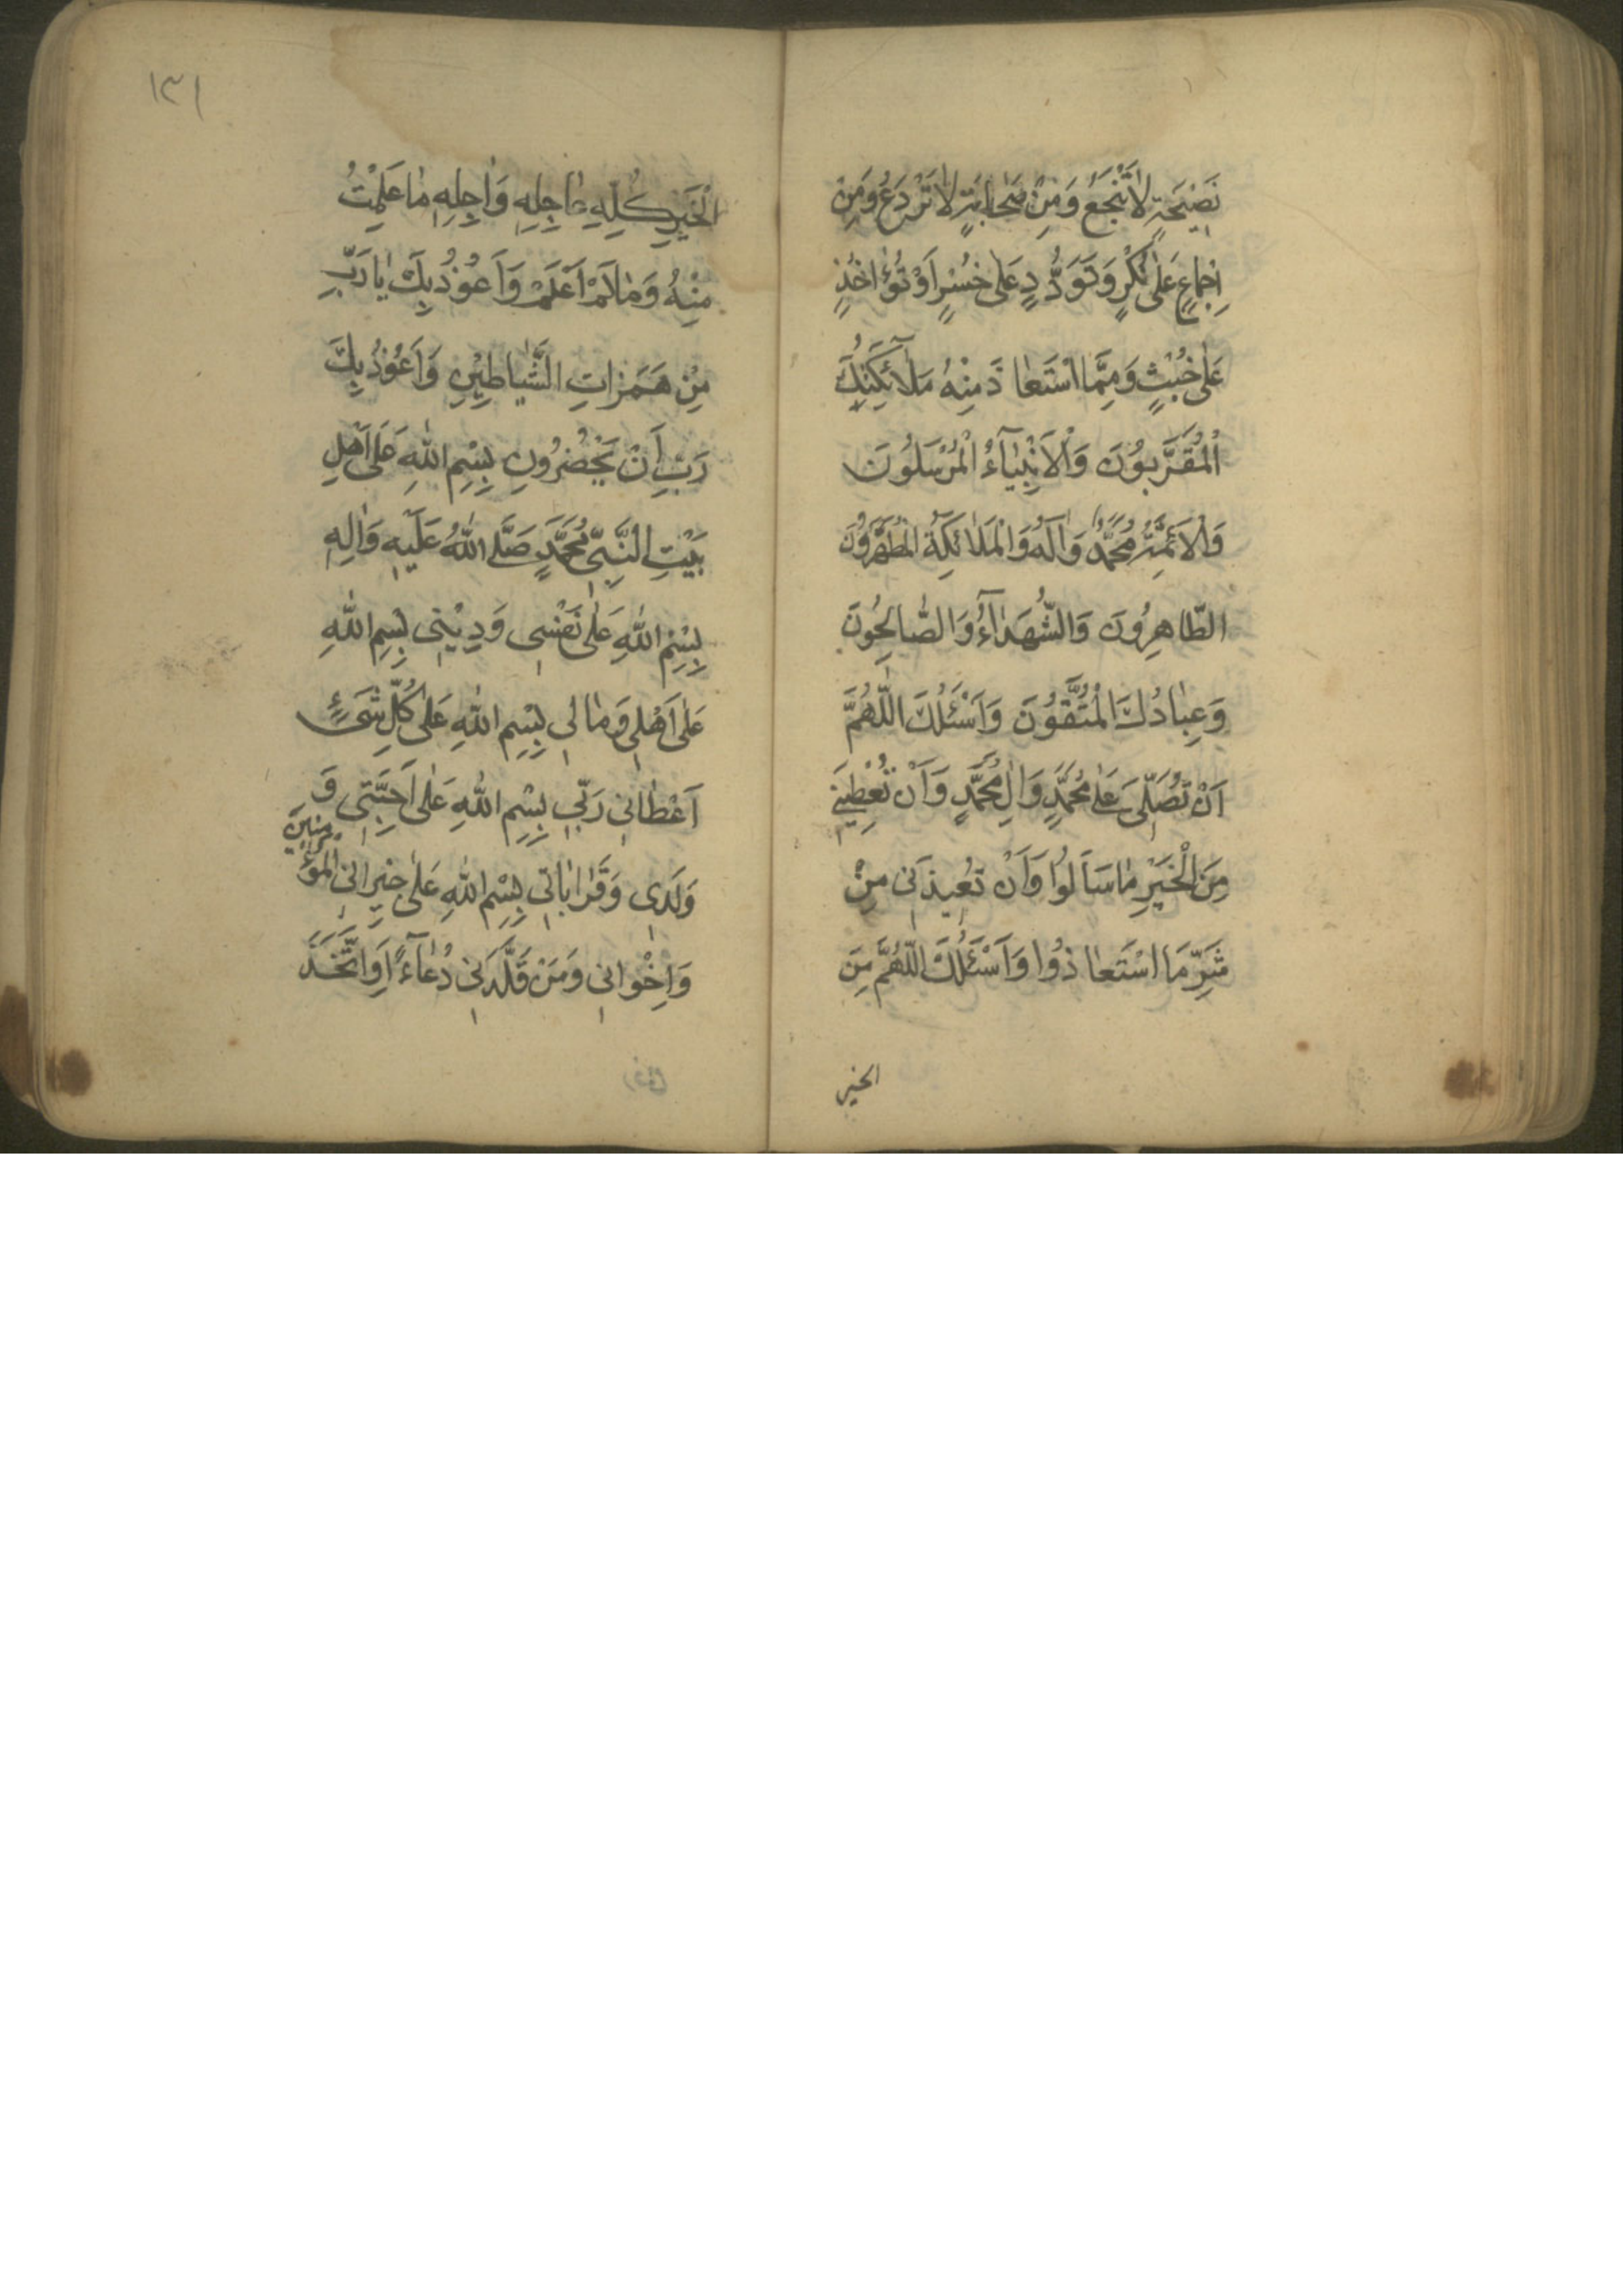 نَصِيْحَةٍ لاٰ تَنْجَعُ وَمِنْ صَحٰابَةٍ لاٰ تَرْدَعُ وَمِنْ
اِجْمٰاعٍ عَلٰى نُكْرٍ وَتَوَدُّدٍ عَلٰى خُسْرٍ اَوْ تُؤٰاخُذٍ
عَلٰى خُبْثٍ وَمِمَّا اسْتَعٰاذَ مِنْهُ مَلاٰۤئِكَتِكَ
اْلمُقَرَّبُوْنَ وَاْلاَنْبِيٰآءُ الْمُرْسَلُوْنَ
وَاْلاَئِمَّةُ مُحَمَّدٌ وَاٰلُهُ وَالْمَلاٰئِكَةُ الْمُطَهَّرُوْنَ
الطّٰاهِرُونَ وَالشُّهَدٰآءُ وَالصّٰالِحُونَ
وَعِبٰادُكَ الْمُتَّقُوْنَ وَاَسْئَلُكَ اللّٰهُمَّ
اَنْ تُصَلِّىَ عَلٰى مُحَمَّدٍ وَاٰلِ مُحَمَّدٍ وَاَنْ تُعْطِيَنِى
مِنَ الْخَيْرِ مٰا سَاَلُوْا وَاَنْ تُعِيذَنِى مِنْ
شَرِّ مَا اسْتَعٰاذُوا وَاَسْئَلُكَ اللّٰهُمَّ مِنَ
الخير
١٣١
الْخَيْرِ كُلِّهِ عٰاجِلِهِ وَاٰجِلِهِ مٰا عَلِمْتُ
مِنْهُ وَمٰا لَمْ اَعْلَمْ وَاَعُوْذُ بِكَ يٰا رَبِّ
مِنْ هَمَزٰاتِ الشَّيٰاطِيْنِ وَاَعُوْذُ بِكَ
رَبِّ اَنْ يَحْضُرُونِ بِسْمِ اللّٰهِ عَلٰى اَهْلِ
بَيْتِ النَّبِىِّ مُحَمَّدٍ صَلَّى اللّٰهُ عَلَيْهِ وَاٰلِهِ
بِسْمِ اللّٰهِ عَلٰى نَفْسِى وَدِيْنِى بِسْمِ اللّٰهِ
عَلٰى اَهْلِى وَمٰالِى بِسْمِ اللّٰهِ عَلٰى كُلِّ شَىْءٍ
اَعْطٰانِى رَبِّى بِسْمِ اللّٰهِ عَلٰى اَحِبَّتِى وَ
وَلَدِى وَقَرٰابٰاتِى بِسْمِ اللّٰهِ عَلٰى جِيْرٰانِى الْمُؤْمِنِيْنَ
وَاِخْوٰانِى وَمَنْ قَلَّدَنِى دُعٰآءً اَوِ اتَّخَذَ